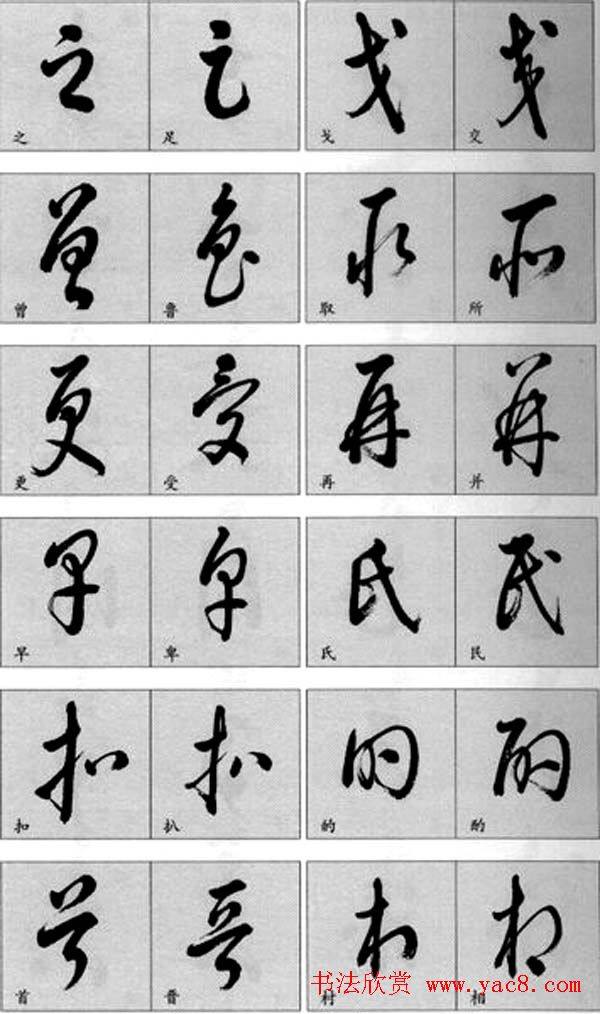 之 足 戈 交
曾 鲁 取 所
更 受 再 并
早 卑 氏 民
扣 扒 的 酌
首 晋 村 相
书法欣赏 www.yac8.com